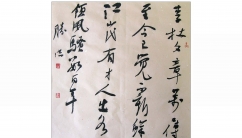 李杜文章万口传
至今已觉不新鲜
江山代有才人出各
领风骚数百年